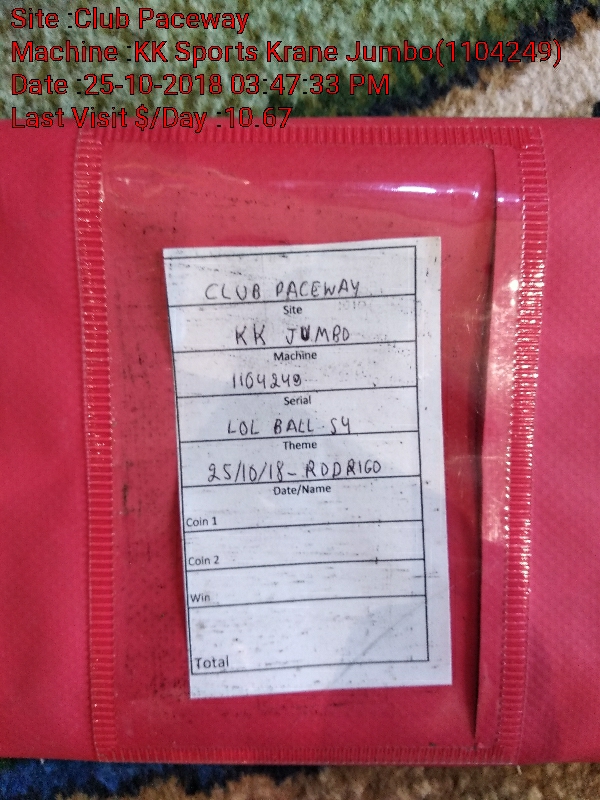 Site :Club Paceway
Machine :KK Sports Krane Jumbo(1104249)
Date :25-10-2018 03:47:33 PM
Last Visit $/Day :10.67
CLUB PACEWAY
Site
KK JUMBO
Machine
1104249
Serial
LOL BALL S4
Theme
25/10/18- RODRIGO
Date/Name
Coin 1
Coin 2
Win
Total